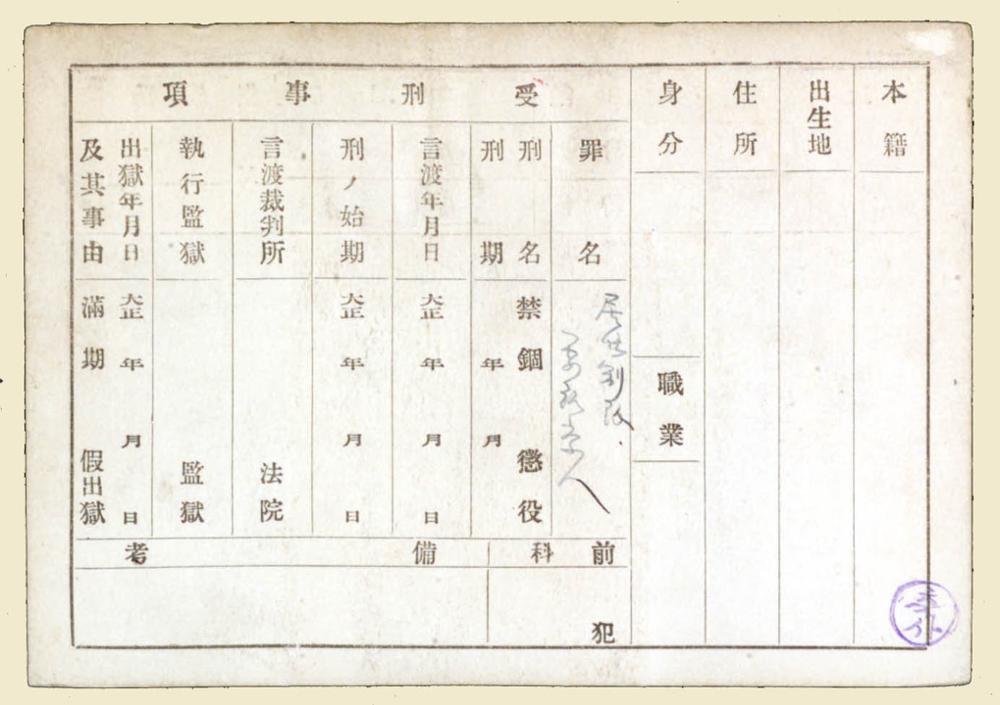 本籍
出生地
住所
身分
職業
受刑事項
罪名
刑名 禁錮 懲役
刑期 年 月
言渡年月日 大正 年 月 日
刑ノ始期 大正 年 月 日
言渡裁判所 法院
執行監獄 監獄
出獄年月日 大正 年 月 日
及其事由 滿期 假出獄
前科
犯
備考